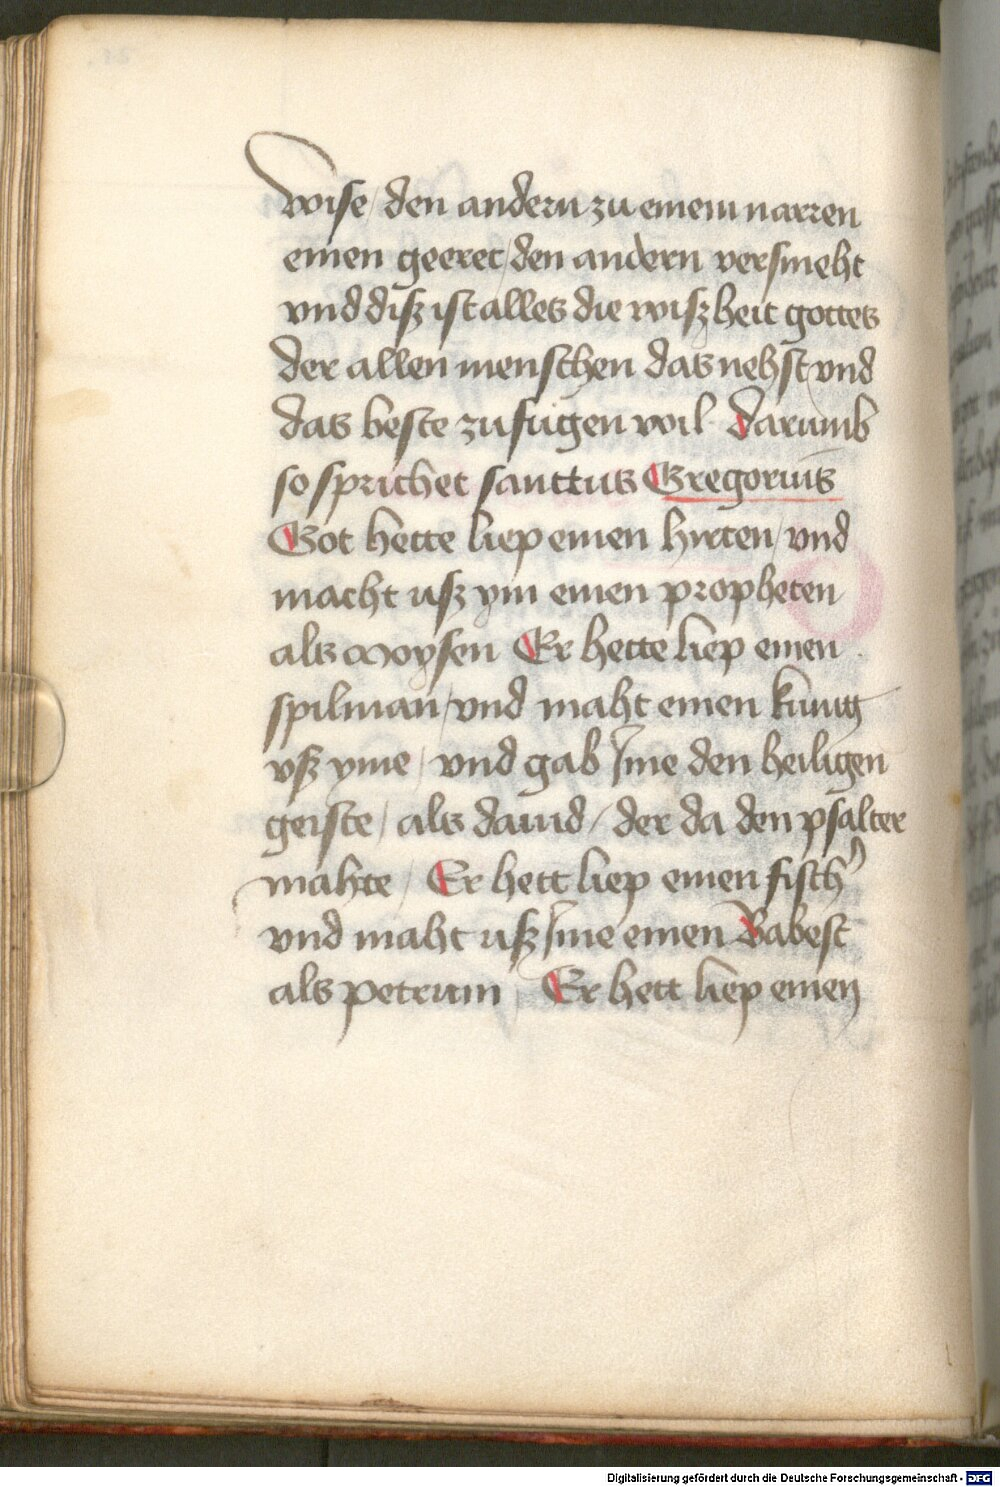 wise / den andern zu einem narren
einen geeret / den andern versmeht
vnd disz ist alles die wiszheit gottes
der allen menschen das nehst vnd
das beste zu fugen wil · darumb
so sprichet santtus Gregorius
Got hette liep einen hirten / vnd
macht usz ym einen propheten
als moysen Er hette liep einen
spilman / vnd maht einen kunig
vsz yme / vnd gab Ime den heiligen
geiste / als dauid / der da den psalter
mahte / Er hett liep einen fisch'
vnd maht usz Ime einen Babest
als petrum / Er hett liep einen
Digitalisierung gefördert durch die Deutsche Forschungsgemeinschaft - DFG